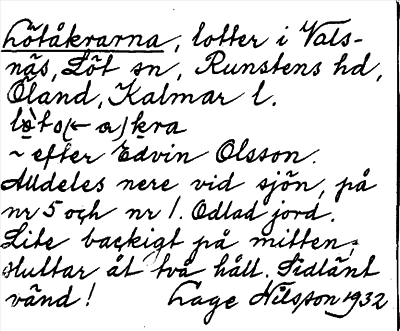 Lötåkrarna, lotter i Vals-
näs, Löt sn, Runstens hd,
Öland, Kalmar l.
lö̀to(←a)kra
~ efter Edvin Olsson.
Alldeles nere vid sjön, på
nr 5 och nr 1. Odlad jord.
Lite backigt på mitten,
sluttar åt två håll. Sidlänt
vänd! Lage Nilsson 1932